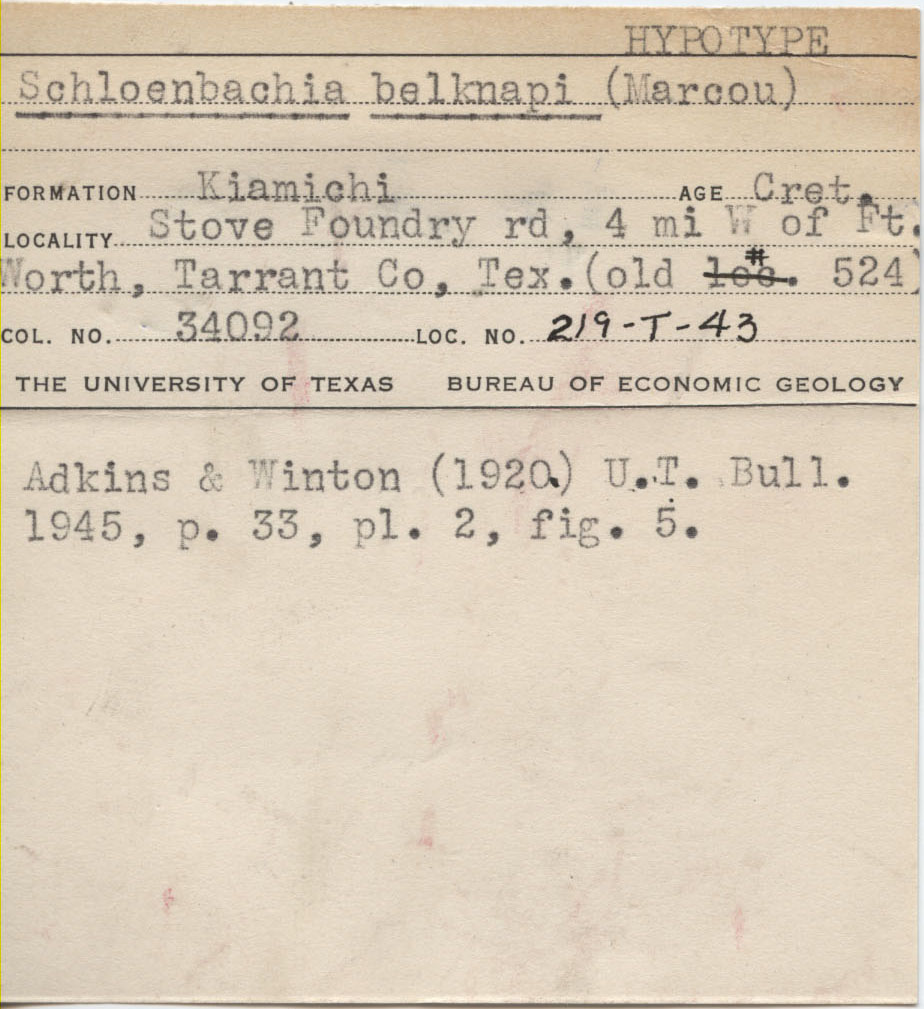 HYPOTYPE
Schloenbachia belknapi (Marcou)
FORMATION Kiamichi AGE Cret.
LOCALITY Stove Foundry rd, 4 mi W of Ft.
Worth, Tarrant Co, Tex. (old # loc. 524)
COL. NO. 34092 LOC. NO. 219-T-43
THE UNIVERSITY OF TEXAS BUREAU OF ECONOMIC GEOLOGY
Adkins & Winton (1920) U.T. Bull.
1945, p. 33, pl. 2, fig. 5.